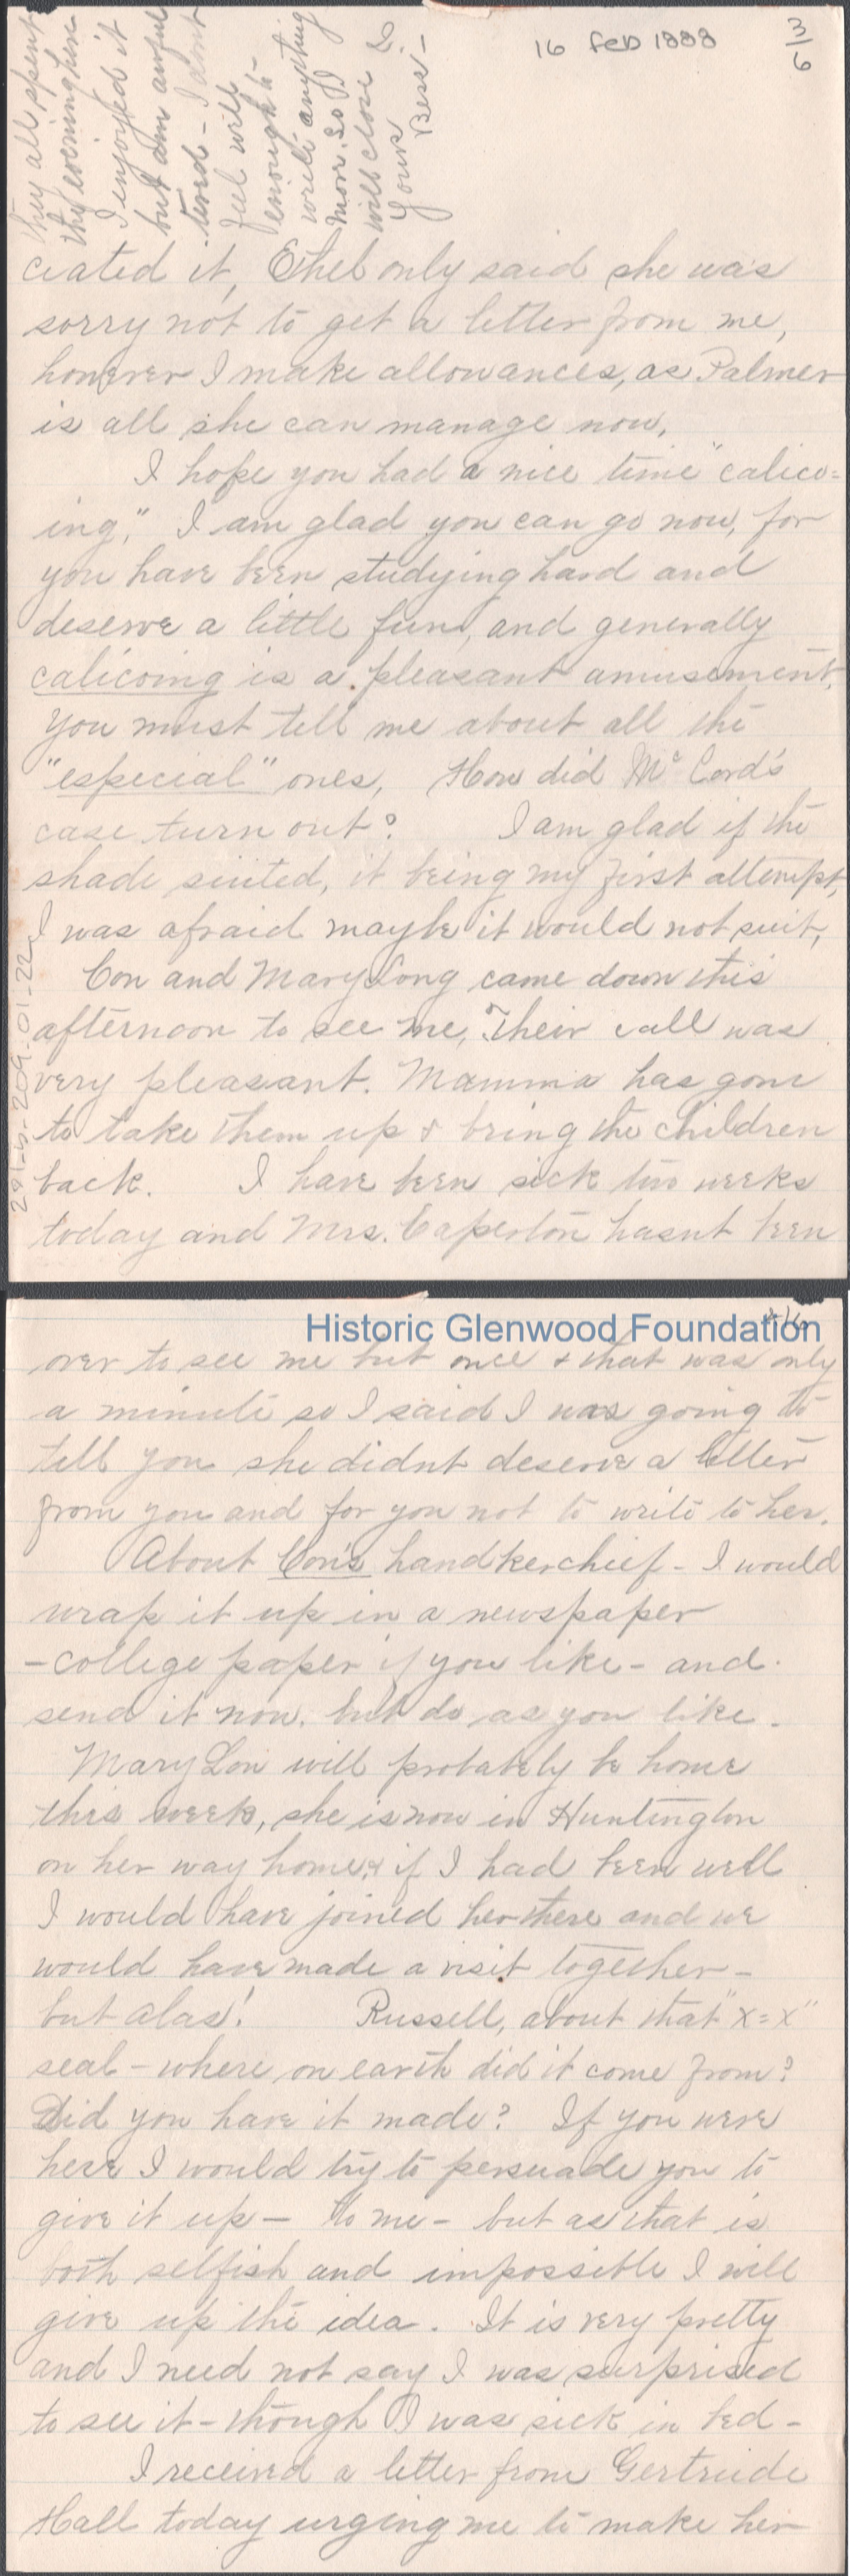 16 Feb 1888
3/6
they all spent
the evening here
I enjoyed it
but am awful
tired - I dont
feel well
enough to
write anything
more. So I
will close
Yours
Bess -
ciated it, Ethel only said she was
sorry not to get a letter from me,
however I make allowances, as Palmer
is all she can manage now,
I hope you had a nice time "calico=
ing," I am glad you can go now, for
you have been studying hard and
deserve a little fun, and generally
calicoing is a pleasant amusement,
You must tell me about all the
"especial" ones, How did McCord's
case turn out? I am glad if the
shade suited, it being my first attempt,
I was afraid maybe it would not suit,
Con and Mary Long came down this
afternoon to see me, Their call was
very pleasant. Mamma has gone
to take them up & bring the children
back. I have been sick two weeks
today and Mrs. Caperton hasnt been
Historic Glenwood Foundation
over to see me but once & that was only
a minute so I said I was going to
tell you she didnt deserve a letter
from you and for you not to write to her.
About Con's handkerchief - I would
wrap it up in a newspaper
- college paper if you like - and
send it now. but do as you like -
Mary Lou will probately be home
this week, she is now in Huntington
on her way home, & if I had been well
I would have joined her there and we
would have made a visit together -
but alas! Russell, about that "x=x"
seal - where on earth did it come from?
Did you have it made? If you were
here I would try to persuade you to
give it up - to me - but as that is
both selfish and impossible I will
give up the idea. It is very pretty
and I need not say I was surprised
to see it - though I was sick in bed -
I received a letter from Gertrude
Hall today urging me to make her